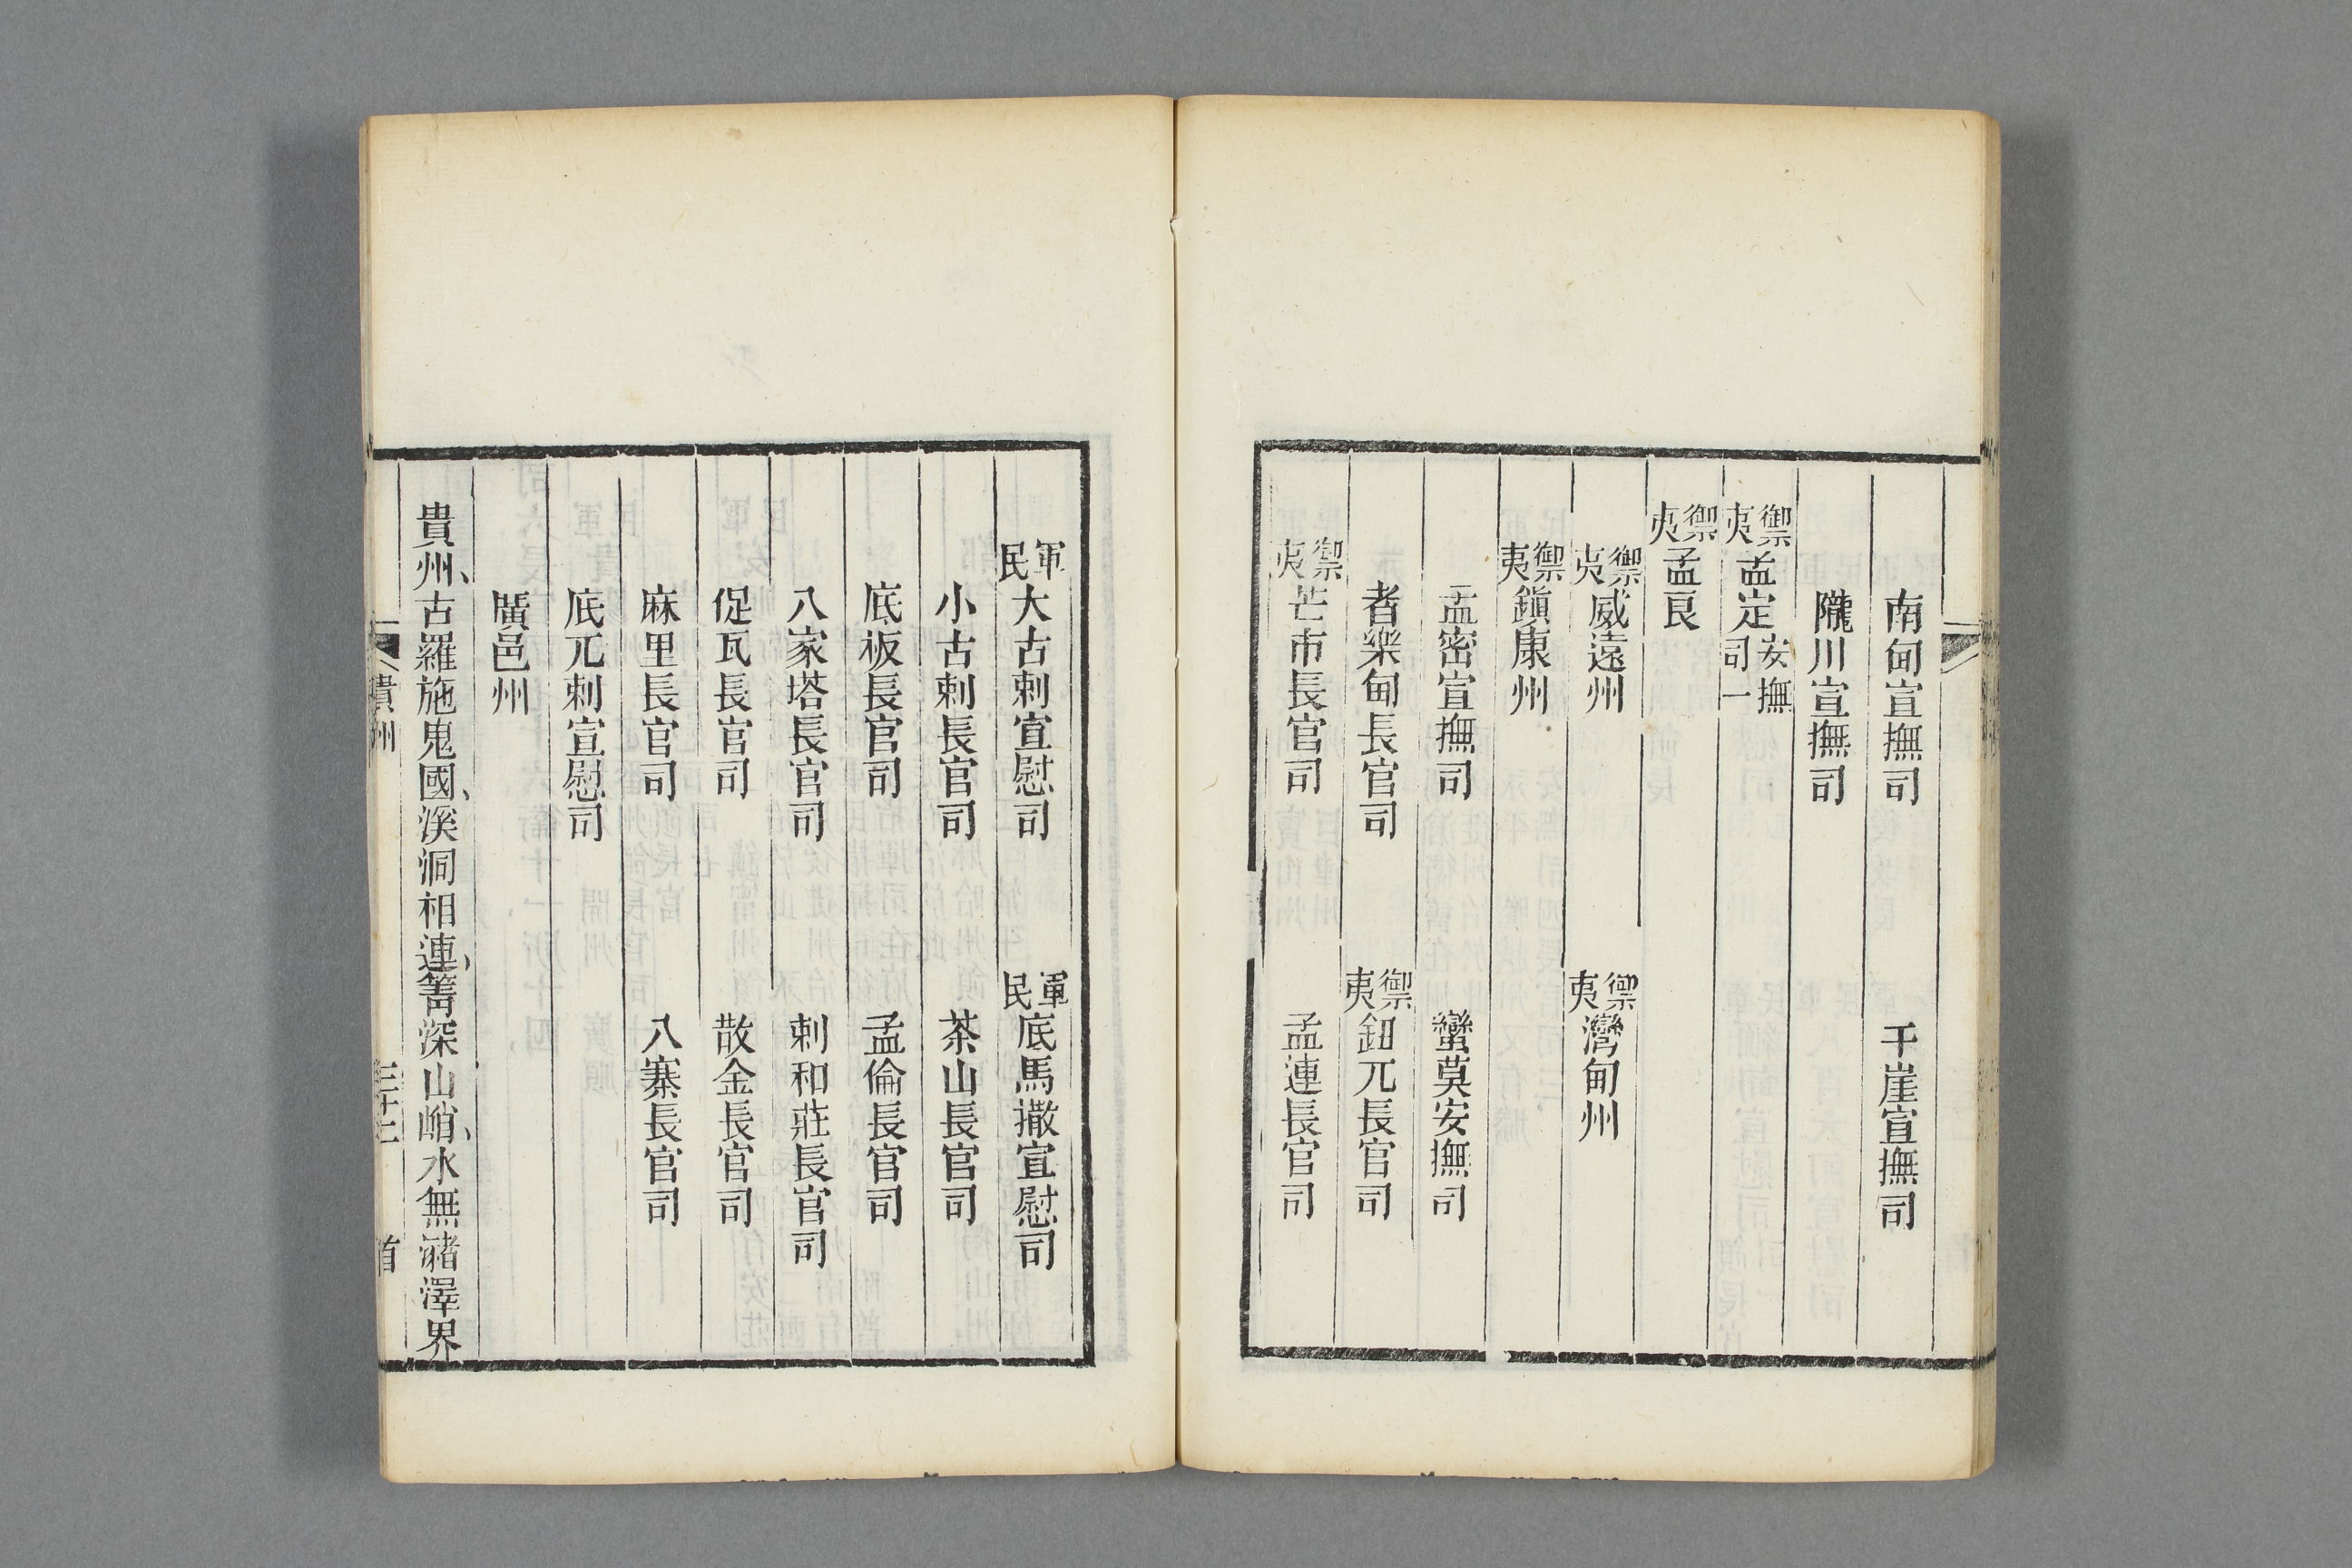 南甸宣撫司　干崖宣撫司
隴川宣撫司
禦夷孟定安撫司一
禦夷孟艮
禦夷威遠州　禦夷灣甸州
禦夷鎮康州
孟密宣撫司　蠻莫安撫司
者樂甸長官司　禦夷鈕兀長官司
禦夷芒市長官司　孟連長官司
軍民大古剌宣慰司　軍民底馬撒宣慰司
小古剌長官司　茶山長官司
底板長官司　孟倫長官司
八家塔長官司　剌和莊長官司
促瓦長官司　散金長官司
麻里長官司　八寨長官司
底兀剌宣慰司
廣邑州
貴州、古羅施鬼國、溪洞相連、箐深山峭、水無瀦澤界
貴州　首